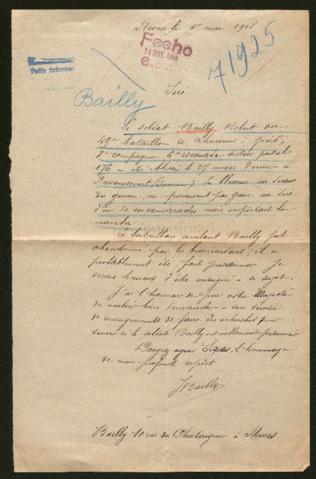 le 1er mai 1918
Fecho
71925
Bailly
Siré
Le soldat Bailly Robert du
49e bataillon de Chasseurs à pied
8e compagnie 6e escouade secteur postal
176 a été blessé le 27 mars dernier à
Davenescourt (Somme). La blessure au-dessus
du genou, ne paraissait pas grave au dire
d'un de ses camarades mais empêchait la
marche.
Le bataillon reculant Bailly fut
abandonné par les brancardiers; il a
probablement été fait prisonnier. Je
serais heureux d'être renseigné à ce sujet.
J'ai l'honneur de prier votre Majesté
de vouloir bien demander à son service
de renseignements de faire des recherches pour
savoir si le soldat Bailly est réellement prisonnier
Daignez agréer Sire, l'hommage
de mon profond respect
JBailly
Bailly 10 rue du Chataignier à